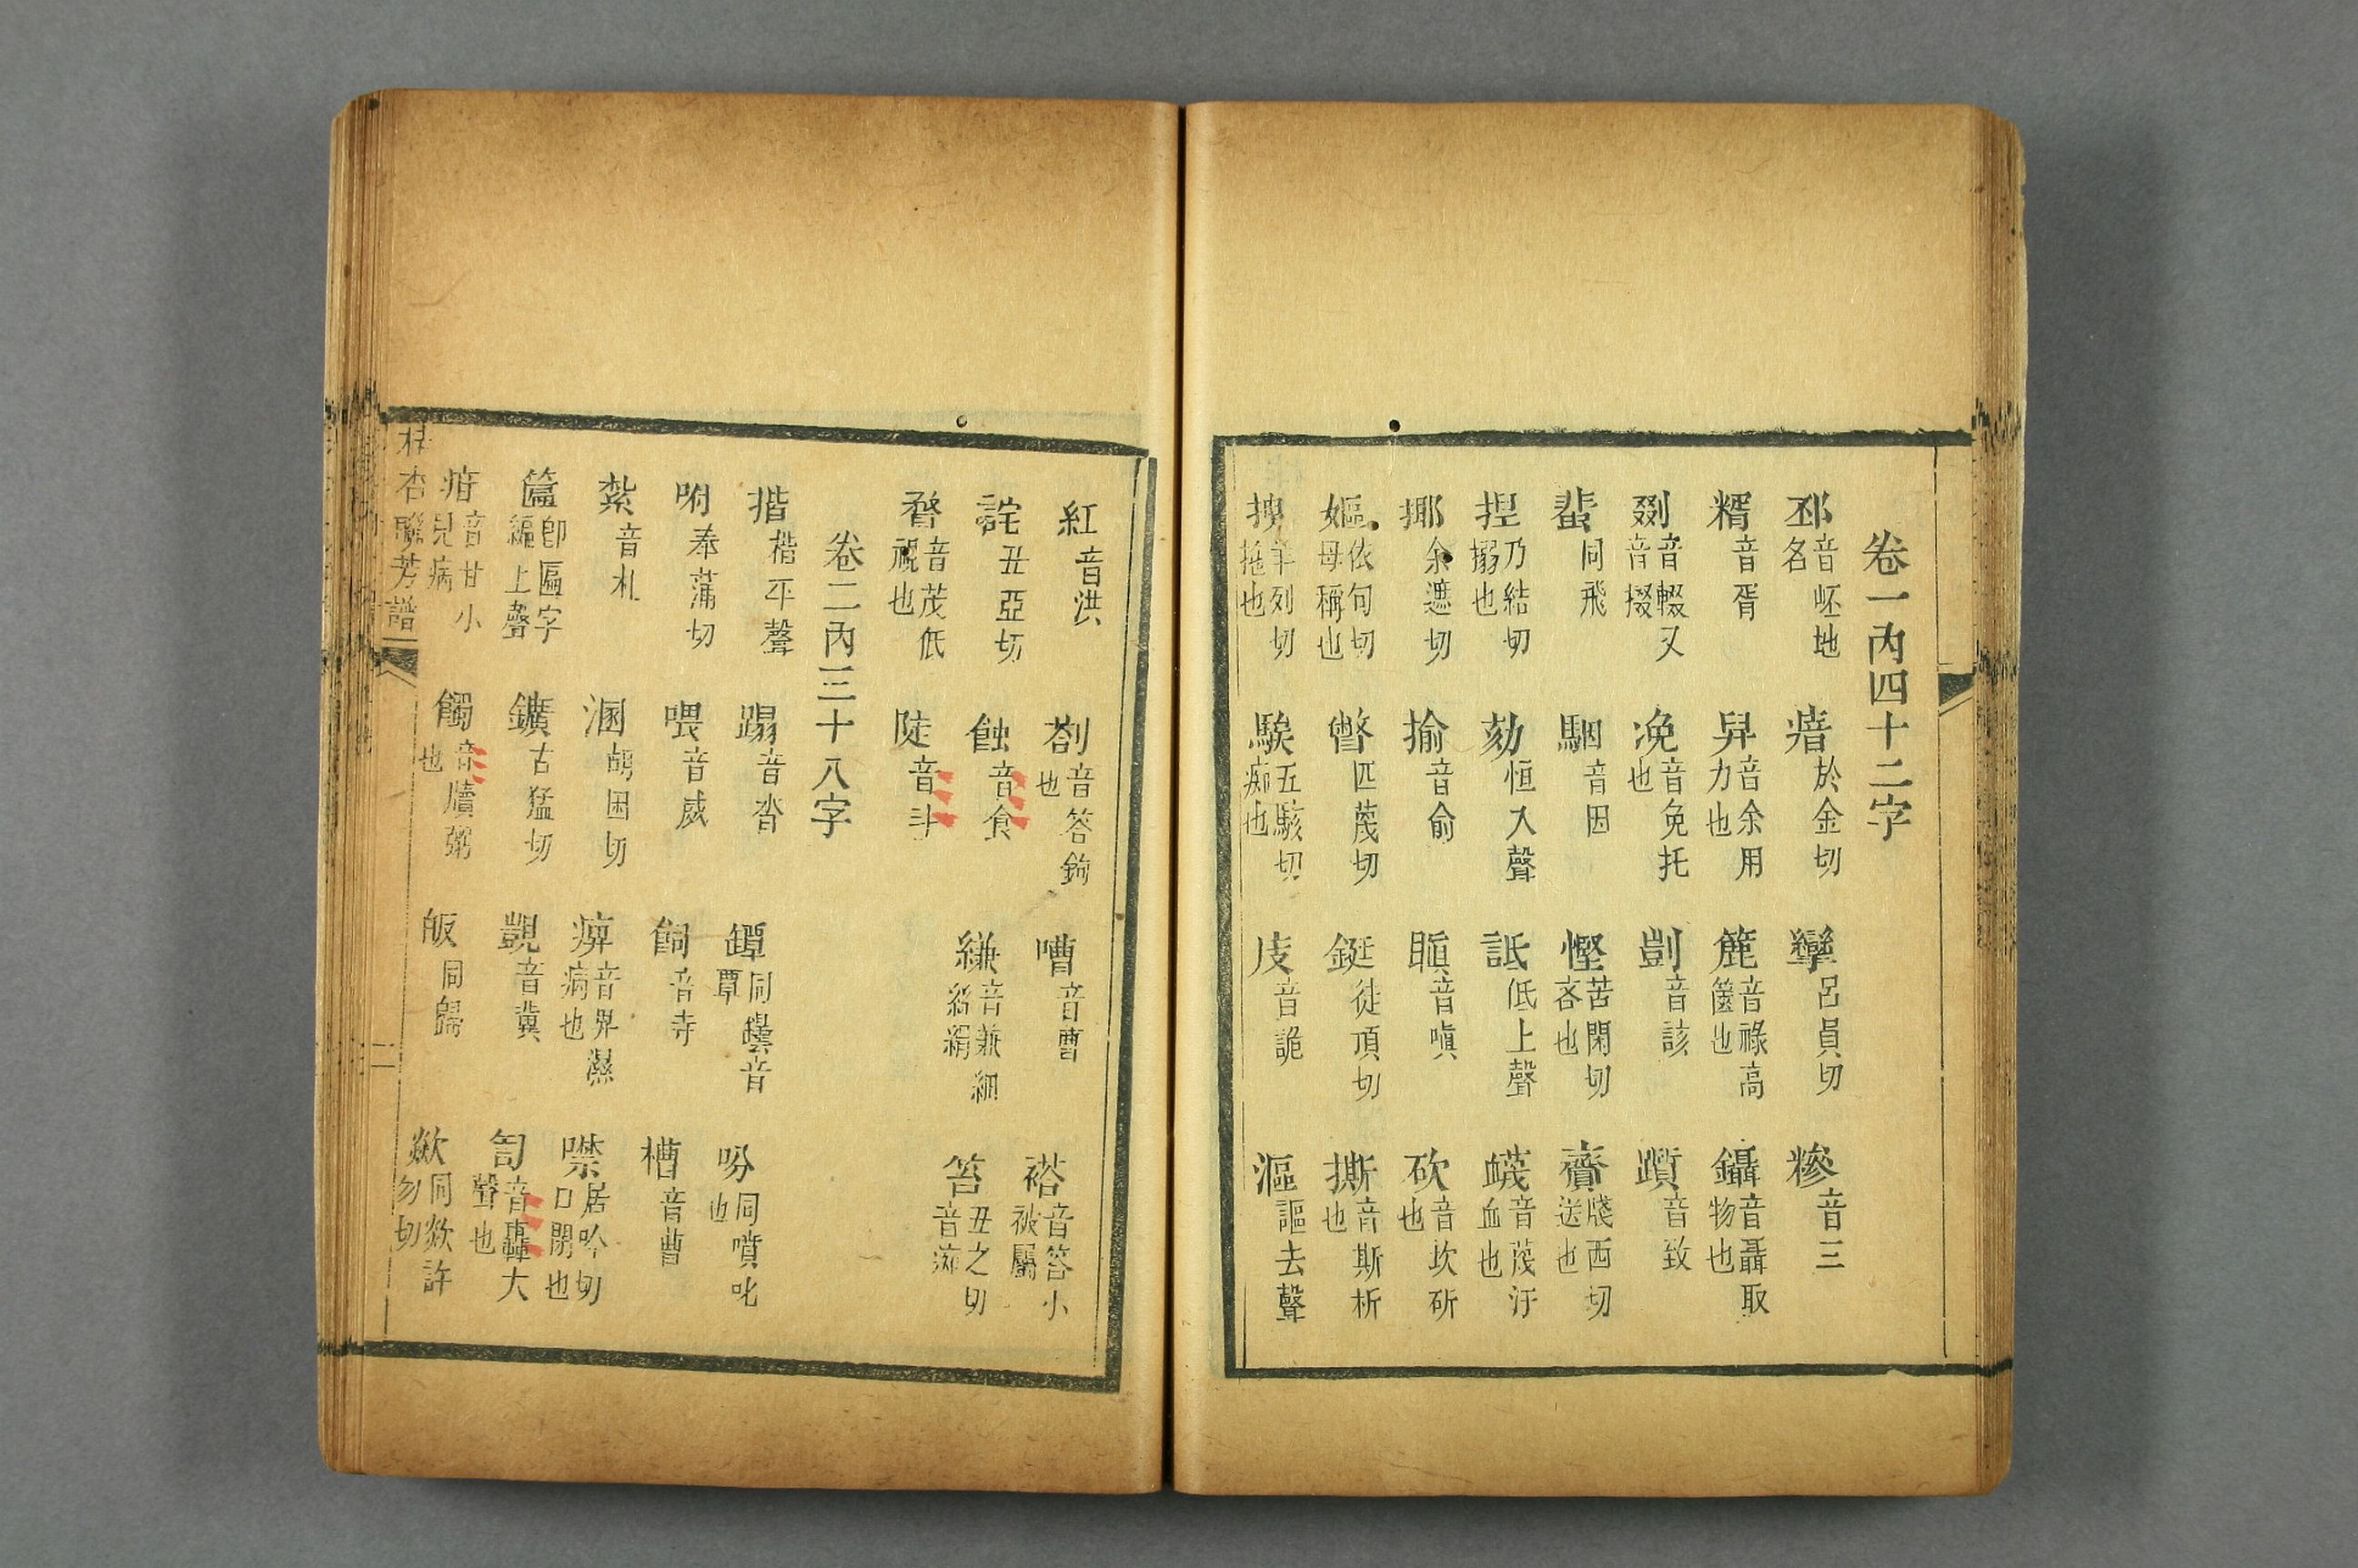 卷一內四十二字
邳音岯地名 瘖於金切 孿呂員切 糝音三
糈音胥 舁音余用力也 簏音祿高篋也 鑷音聶取物也
剟音輟又音掇 浼音免托也 剴音該 躓音致
蜚同飛 駰音因 慳苦閑切吝也 齎牋西切送也
捏乃結切搦也 劾恒入聲 詆低上聲 蠛音蔑汙血也
揶余遮切 揄音俞 瞋音嗔 砍音坎斫也
嫗依句切母稱也 瞥匹蔑切 鋌徒頂切 撕音斯析也
拽羊列切拖也 騃五駭切痴也 庋音詭 漚謳去聲
紅音洪 剳音答鉤也 嘈音曹 褡音答小被屬
詫丑亞切 蝕音食 縑音兼細絲絹 笞丑之切音痴
瞀音茂低視也 陡音斗
卷二內三十八字
揩楷平聲 蹋音沓 罈同罎音覃 吩同噴叱也
咐奉蒲切 喂音威 飼音寺 槽音曹
紮音札 溷胡困切 痹音畀濕病也 噤居吟切口閉也
籩卽匾字編上聲 鑛古猛切 覬音冀 訇音轟大聲也
疳音甘小兒病 饘音牘粥也 皈同歸 欻同欻許勿切
杜杏聯芳譜 二